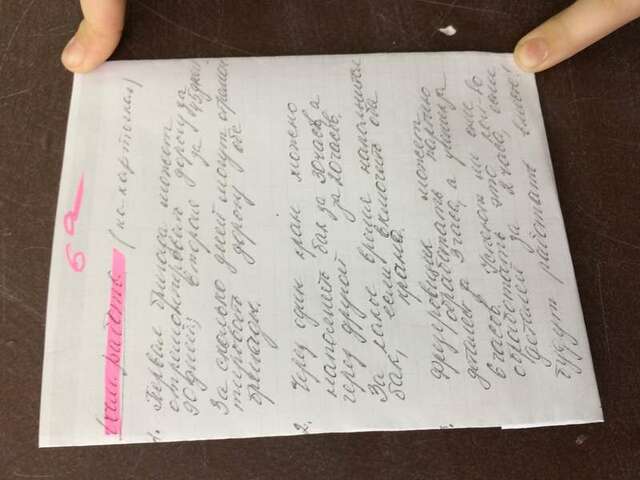 6 а
Сам. работа. (на карточках)
1. Первая бригада может
отремонтировать дорогу за
90 дней, вторая за 45 дней.
За сколько дней могут отремон
тировать дорогу обе
бригады.
2. Через один кран можно
наполнить бак за 30 часов, а
через другой за 20 часов.
За какое время наполнится
бак, если включить оба
крана.
3. Фрезеровщик может
обработать партию
деталей за 3 часа, а ученик за
6 часов. Успеют ли они
обработать это кол-во
деталей за 2 часа, если
будут работать вместе?